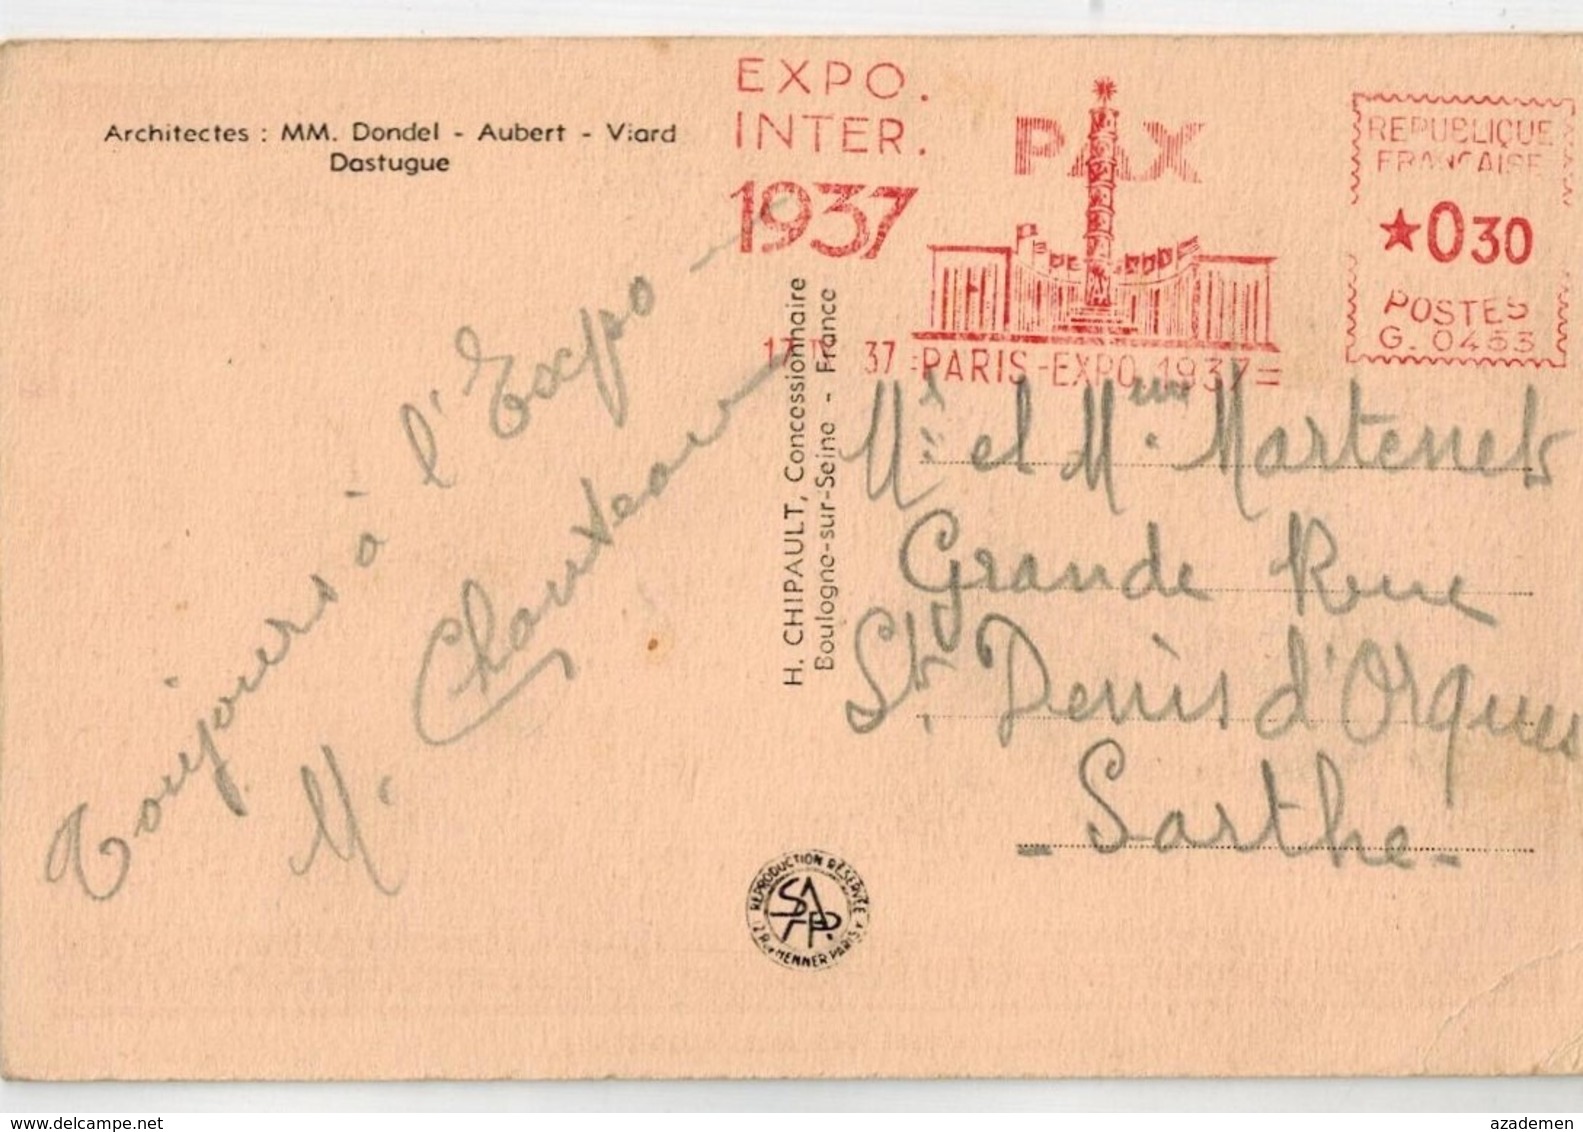 Architectes : MM. Dondel - Aubert - Viard
Dastugue
EXPO.
INTER.
1937
PAX
37 =PARIS-EXPO 1937=
REPUBLIQUE
FRANCAISE
★030
POSTES
G. 0453
Toujours à l'Expo -
M. Chauveau
H. CHIPAULT, Concessionnaire
Boulogne-sur-Seine - France
Mr. et Mme. Martenet
Grande Rue
St. Denis d'Orques
- Sarthe -
REPRODUCTION RÉSERVÉE
SAPP.
HENNER PARIS
azademen